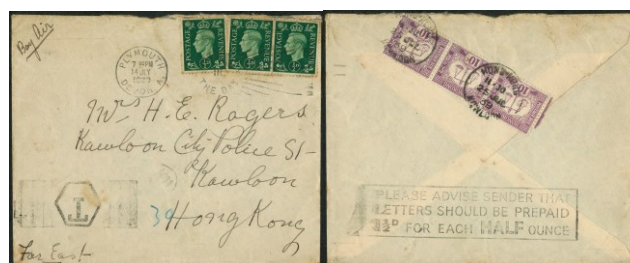 By Air
POSTAGE REVENUE
POSTAGE REVENUE
POSTAGE REVENUE
PLYMOUTH
DEVON
Mrs H. E. Rogers
Kowloon City Police St-
Kowloon
Hong Kong
39
T
Far East
10
10
PLEASE ADVISE SENDER THAT
LETTERS SHOULD BE PREPAID
FOR EACH HALF OUNCE